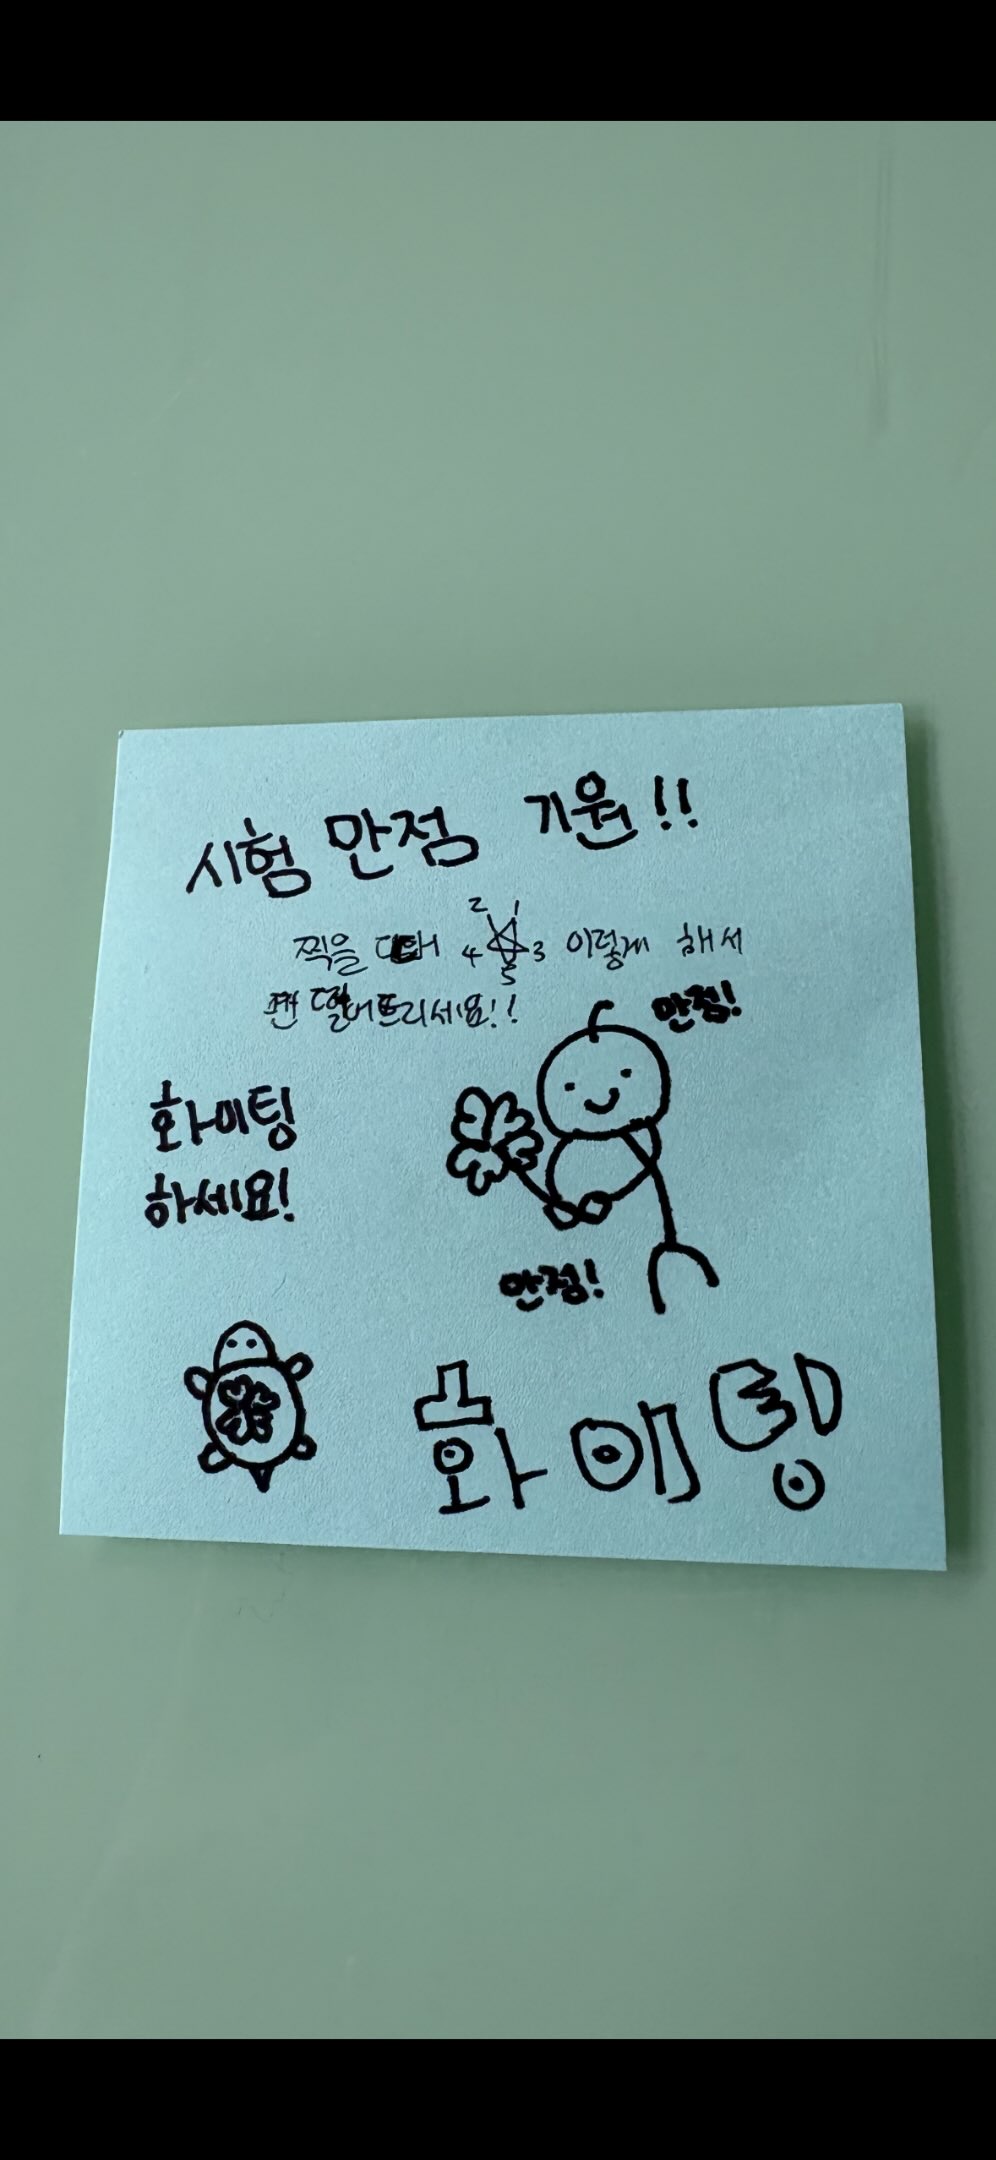 시험 만점 기원!!
찍을 때 2 1 4 3 5 이렇게 해서
펜 떨어뜨리세요!!
만점!
화이팅
하세요!
만점!
화이팅